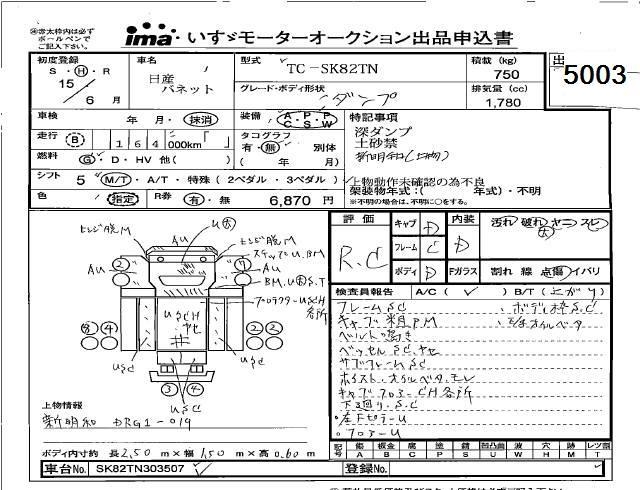 ㊟赤太枠内は必ず
ボールペンで
ご記入下さい。
ima いすゞモーターオークション出品申込書
5003
初度登録 車名 型式 積載 (kg)
S・H・R 日産 TC-SK82TN 750
15 バネット グレード・ボディ形状 排気量 (cc)
6 月 ダンプ 1,780
車検 年 月・抹消 装備 A・P・P 特記事項
C・S・W
走行 B 164 000km タコグラフ 深ダンプ
有・無 別体 土砂禁
燃料 G・D・HV 他( ) ( 年 月) 新明和(上物)
シフト 5 M/T・A/T・特殊 (2ペダル・3ペダル) 上物動作未確認の為不良
架装物年式:( 年式)・不明
色 指定 R券 有・無 6,870 円 ※不明の場合は、不明に○をする。
評価 キャブ D 内装 汚れ 破れ ヤニ スピ
R.C フレーム C D 大
ボディ D Fガラス 割れ 線 点傷 イバリ
検査員報告 A/C ( ) B/T (上がり)
フレームSC ボディ枠S.C
キャブ 粗P.M
ベルト鳴き
ベッセル SC.ヤセ
サブフレームSC
ホイスト.オイルベタ.モレ
キャブフロアーCH各所
下廻り.S.C
フロアーU
ヒンジ脱M
AU
U大
ヒンジ脱M
ステップU.BM
AU
AU
BM.U大S.T
プロテクターUSCH
各所
2
7
USCH
ヤセ
8 4
2 2
USC
USC
3 4
USC
上物情報
新明和 DRG1-019
ボディ内寸 約 長 2.50 m × 幅 1.50 m × 高 0.60 m
記号 傷 板金 腐 塗 錆 凹凸 波 穴 曲 レツ票
A B C P S U W H M T
車台No. SK82TN303507 登録No.